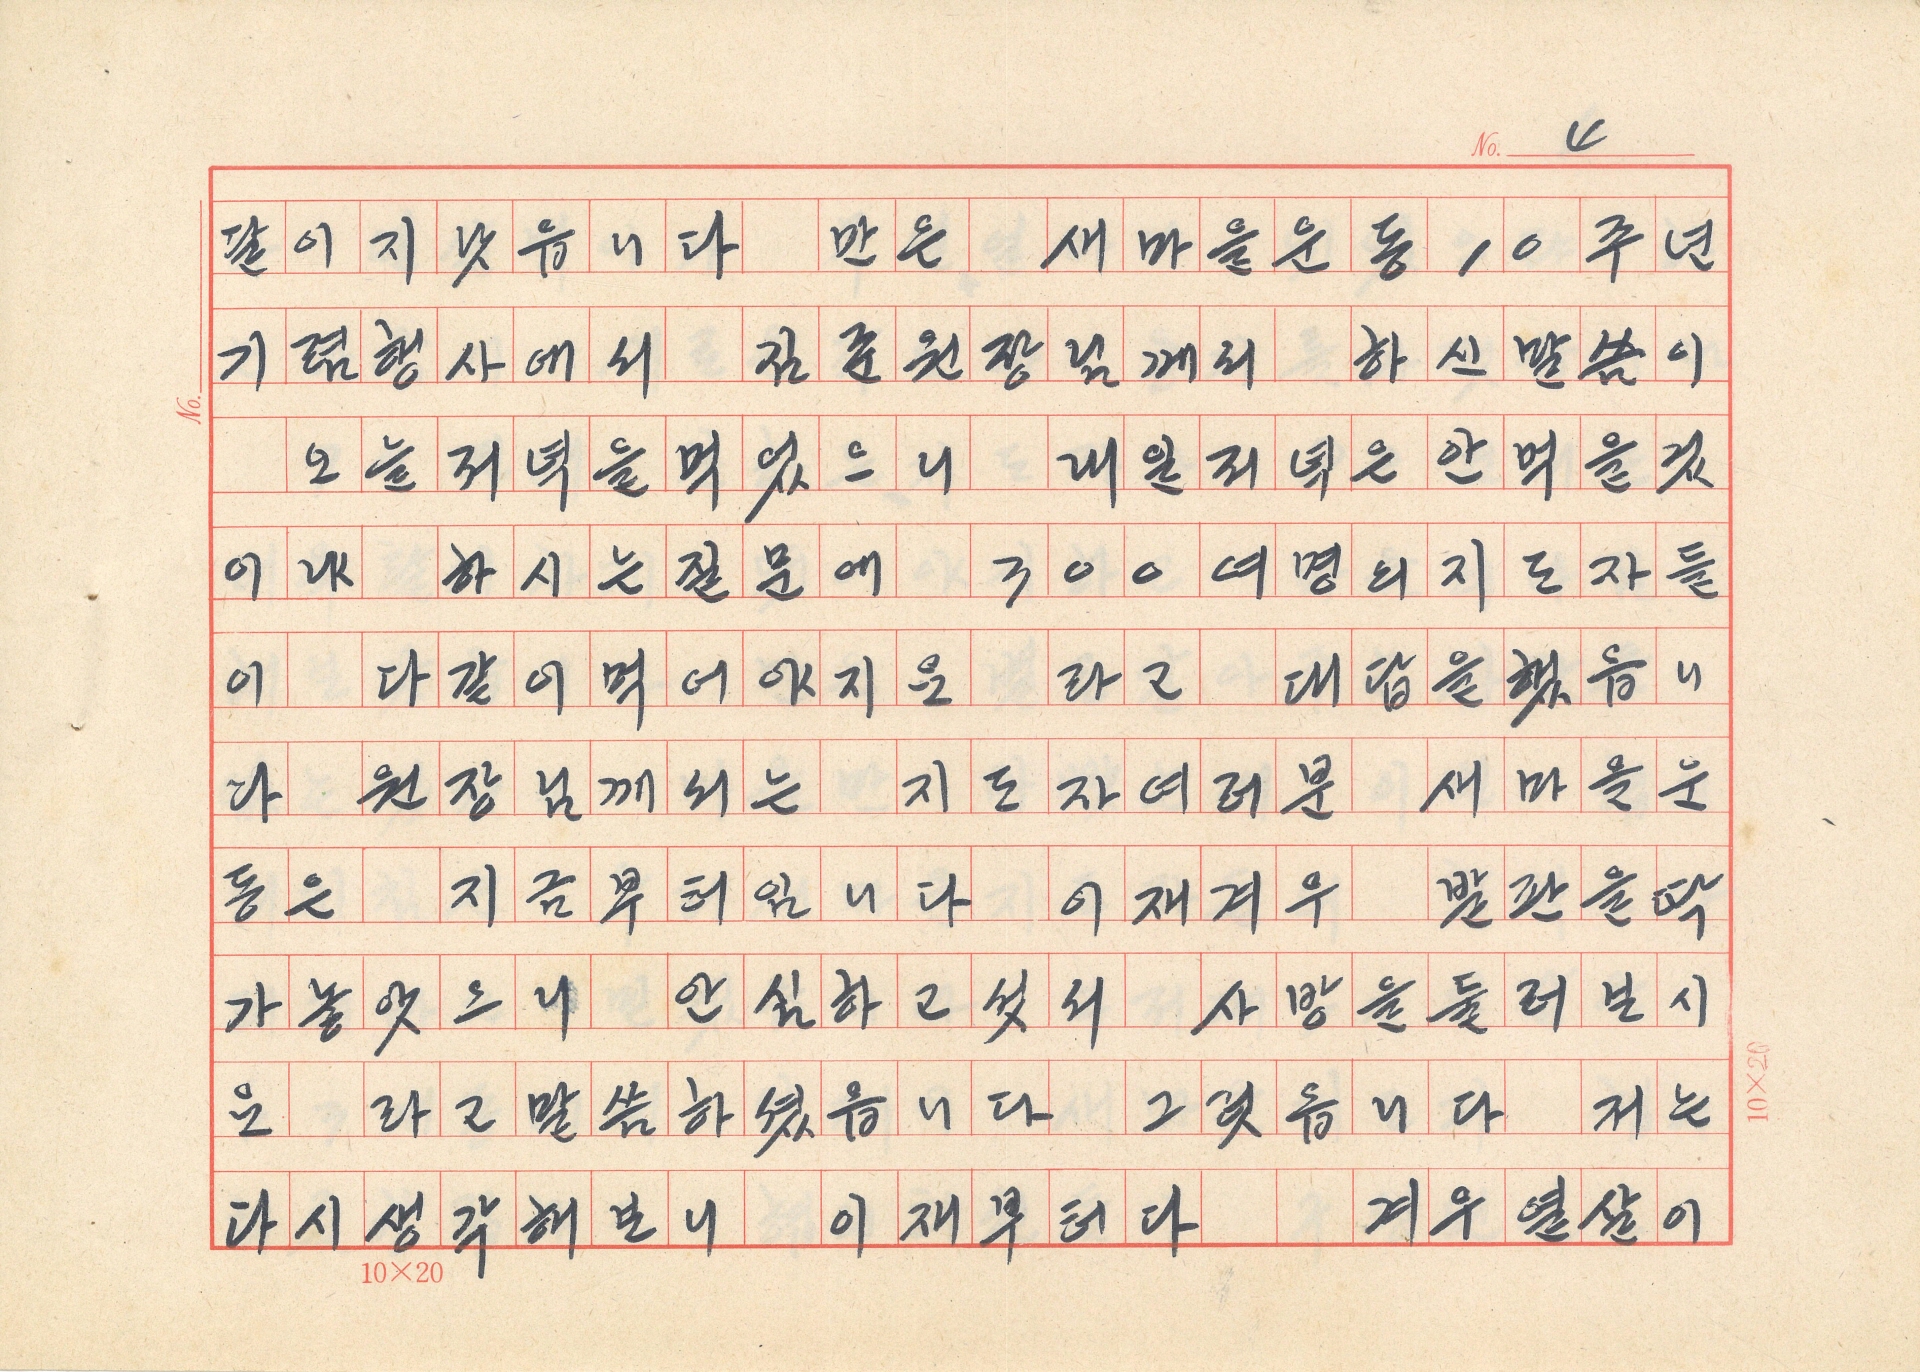 No. 4
달이지낫읍니다 만은 새마을운동10주년
기렴행사에서 김준원장님께서 하신말씀이
오늘저녁을먹었으니 내일저녁은안먹을것
이냐 하시는질문에 300여명의지도자들
이 다같이먹어야지요 라고 대답을했읍니
다 원장님께서는 지도자여러분 새마을운
동은 지금부터입니다 이재겨우 발판을딱
가놓앗으니 안심하고섯서 사방을둘러보시
요 라고말씀하셨읍니다 그럿읍니다 저는
다시생각해보니 이재부터다 겨우열살이
10×20
No.
10×20